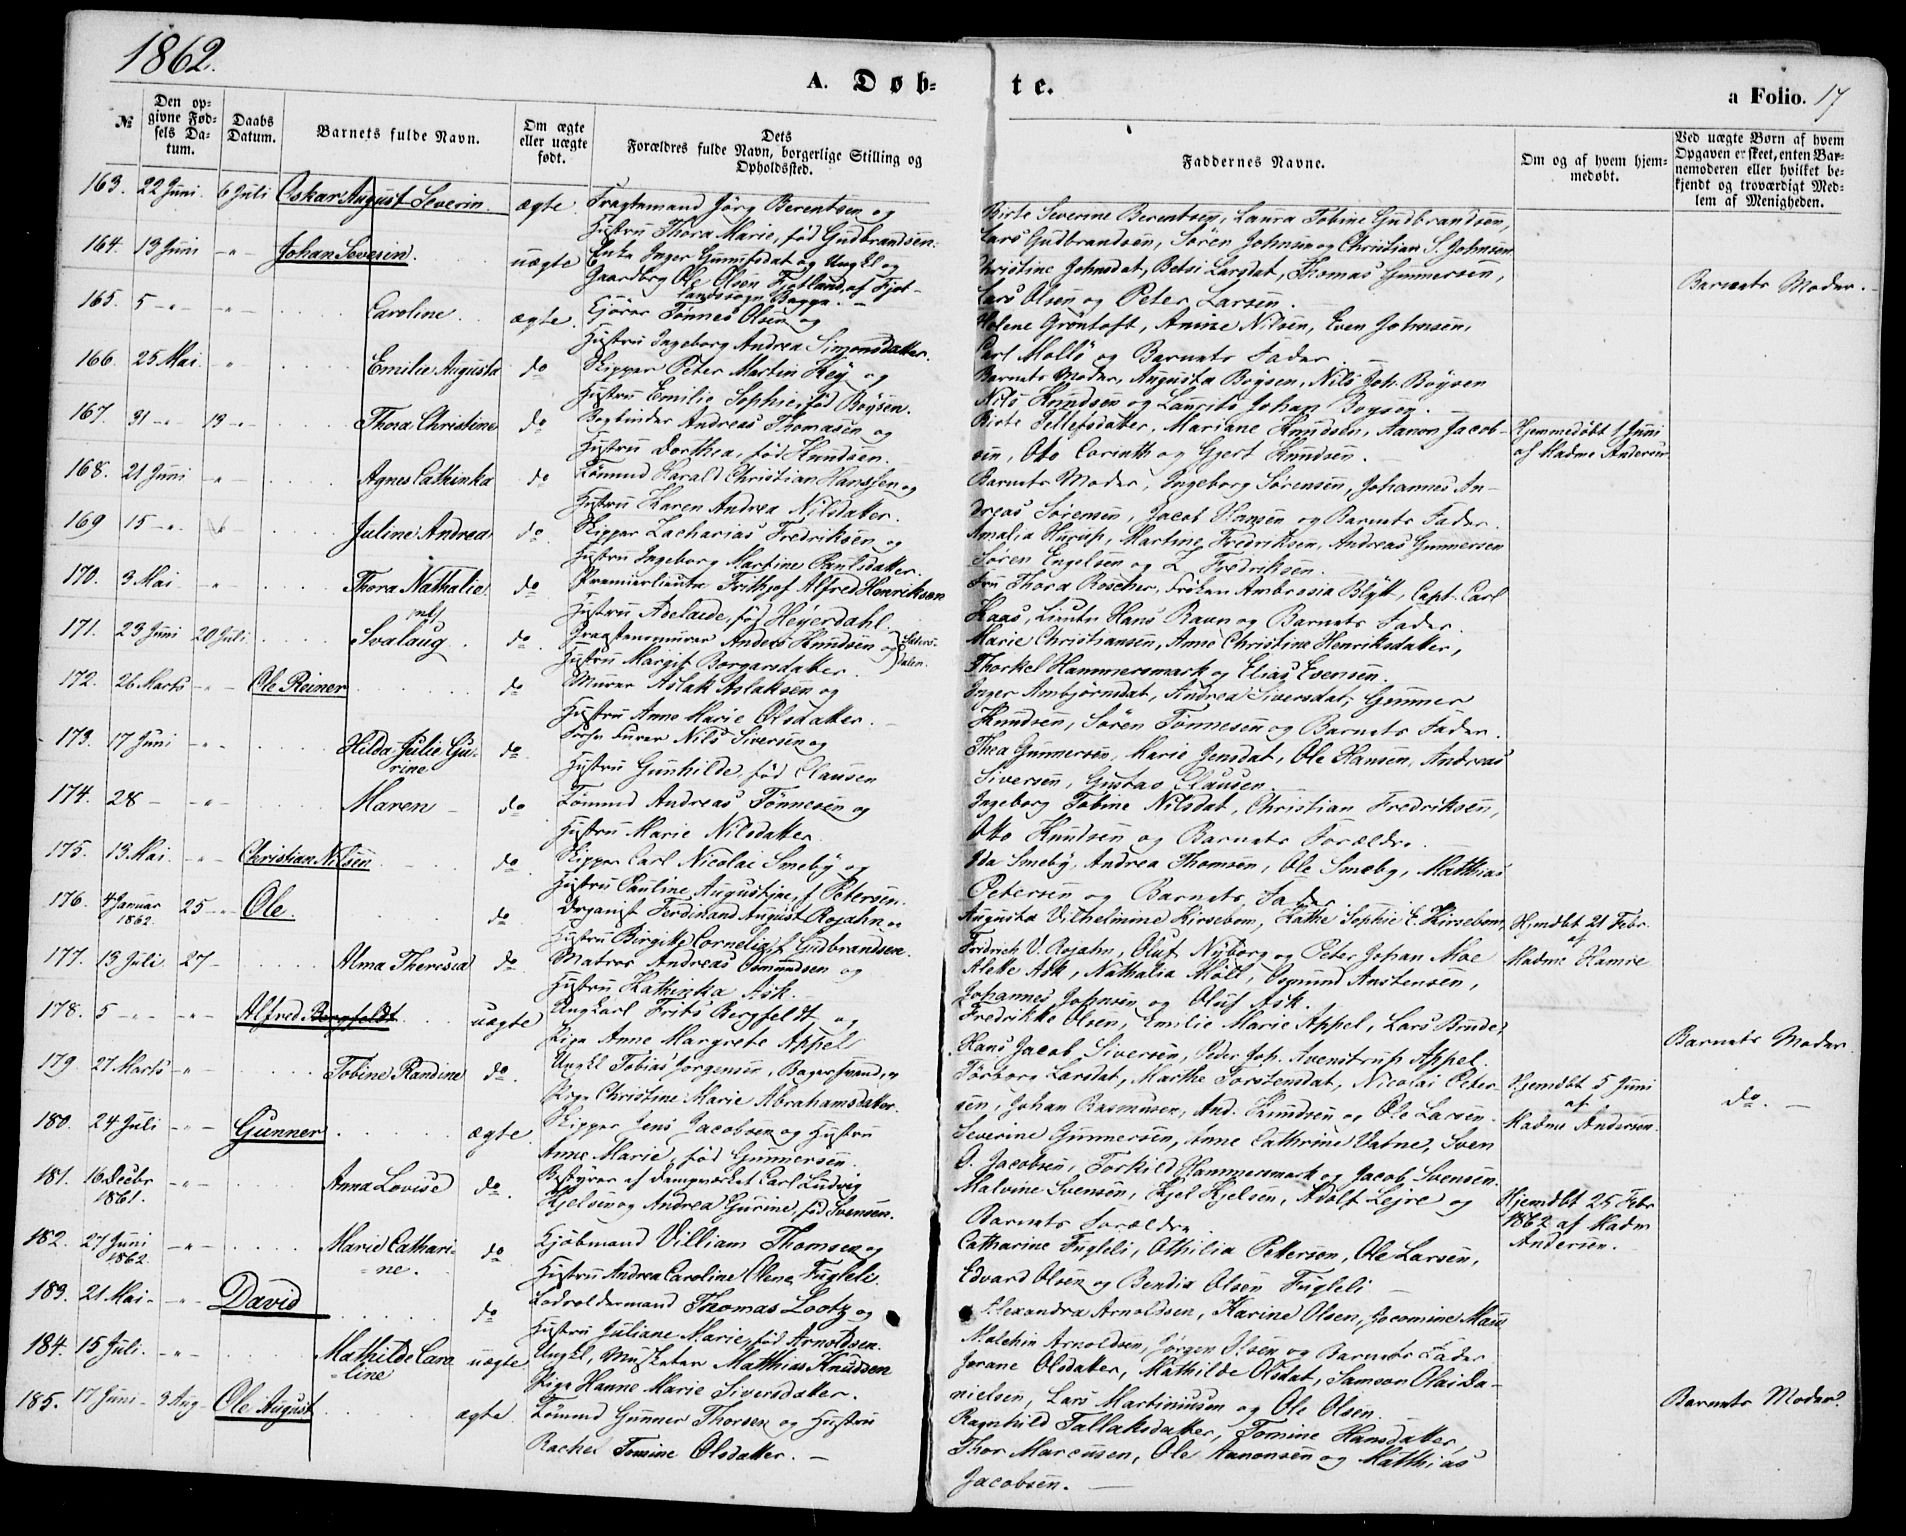 1862.
A. Døb-
te.
a Folio. 17
№
Den op-
givne Fød-
sels Da-
tum.
Daabs
Datum.
Barnets fulde Navn.
Om ægte
eller uægte
født.
Dets
Forældres fulde Navn, borgerlige Stilling og
Opholdssted.
Faddernes Navne.
Om og af hvem hjem-
medøbt.
Ved uægte Børn af hvem
Opgaven er skeet, enten Bar-
nemoderen eller hvilket be-
kjendt og troværdigt Med-
lem af Menigheden.
163. 22 Juni. 6 Juli Oskar August Severin. ægte. Fragtemand Jörg Berentsen og
Hustru Thora Marie, fød Gudbrandsen.
Birte Severine Berentsen, Laura Tobine Gudbrandsen,
Lars Gudbrandsen, Sören Johnsen og Christian S. Johnsen
164. 13 Juni -"- Johan Severin. uægte Enke Inger Gunufsdat og Ungkl og
Gaardbrg Ole Olsen Fjotland, af Fjot-
landssogn, Bagge. -
Christine Johnsdat, Betsi Larsdat, Thomas Gunnersen,
Lars Olsen og Peter Larsen.
Barnets Moder.
165. 5 -"- -"- Caroline. ægte. Gjörer Tönnes Olsen og
Hustru Ingeborg Andrea Simonsdatter.
Helene Gröntoft, Amine Nilsen, Even Johnsen,
Carl Mollö og Barnets Fader.
166. 25 Mai -"- Emilie Augusta do Skipper Peter Martin Keÿ og
Hustru Emilie Sophie, fød Boÿsen.
Barnets Moder, Augusta Boÿsen, Nils Joh. Boÿsen
Nils Knudsen og Laurits Johan Boysen.
167. 31 -"- 13 -"- Thora Christine do Bogbinder Andreas Thomasen og
Hustru Dorthea, fød Knudsen.
Birte Tellefsdatter, Mariane Knudsen, Aanon Jacob-
sen, Otto Corinth og Gjert Knudsen.
Hjemmedøbt 1 Juni
af Madme Andersen
168. 21 Juni -"- Agnes Cathinka do Tömmd Harald Christian Hanssen og
Hustru Karen Andrea Nilsdatter.
Barnets Moder, Ingeborg Sörensen, Johannes An-
dreas Sörensen, Jacob Hansen og Barnets Fader.
169 15 -"- Juline Andrea do Skipper Zacharias Fredriksen og
Hustru Ingeborg Martine Paulsdatter.
Amalia Hurup, Martine Fredriksen, Andreas Gunnersen
Sören Engelsen og L Fredriksen.
170. 3 Mai -"- Thora Nathalie do Premierlieutn Frithjof Alfred Henriksen
Hustru Adelaide, fød Heÿerdahl.
Fru Thora Roscher, Fröken Ambrosia Blÿtt, Capt. Carl
Haas, Lieutn Hans Ravn og Barnets Fader.
171. 23 Juni 20 Juli Svalaug do. Graastensmurer Anders Knudsen og
Hustru Margit Borgarsdatter. Sæters-
dalen.
Marie Christiansen, Anne Christine Henriksdatter,
Thorkel Hammersmark og Elias Evensen.
172. 26 Marts -"- Ole Reiner do Murer Aslak Aslaksen og
Hustru Anne Marie Olsdatter.
Inger Ambjörnsdat, Andrea Siversdat, Gunner
Knudsen, Sören Tönnesen og Barnets Fader.
173. 17 Juni -"- Hilda Julie Gu-
rine do Furer Nils Siversen og
Hustru Gunhilde, fød Clausen
Thea Gunnersen, Marie Jensdat, Ole Hansen, Andreas
Siversen, Gustav Clausen.
174. 28 - -"- Maren do Tömmd Andreas Tönnesen og
Hustru Marie Nilsdatter.
Ingeborg Tobine Nilsdat, Christian Fredriksen,
Otto Knudsen og Barnets Forældre.
175. 13 Mai. -"- Christian Nilsen do Skipper Carl Nicolai Smebÿ og
Hustru Pauline Augustine, f. Petersen.
Ida Smebÿ, Andrea Thomsen, Ole Smeby, Matthias
Petersen og Barnets Fader.
176. 4 Januar
1862. 25 -"- Ole. do Organist Ferdinand August Rojahn og
Hustru Birgitte Cornelia f. Gudbrandsen.
Augusta Vilhelmine Kirsebom, Käthe Sophie E. Kirsebom,
Fridrich V. Rojahn, Oluf Nÿborg og Peter Johan Moe
Hjemdbt 21 Febr.
af
Madme Hamre
177. 13 Juli 27 - Alma Theresia do Matros Andreas Osmundsen og
Hustru Kathinka Ask.
Alette Ask, Nathalia Möll, Osmund Anstensen,
Johannes Johnsen og Oluf Ask.
178. 5 -"- -"- Alfred Bergfeldt uægte Ungkarl Frits Bergfeldt og
Pige Anne Margrete Appel
Fredrikke Olsen, Emilie Marie Appel, Lars Brude,
Hans Jacob Siversen, Peder Joh. Avenstrup Appel.
Barnets Moder
179 27 Marts -"- Tobine Randine do. Ungkl Tobias Jorgensen, Bagersvend, og
Pige Christine Marie Abrahamsdatter.
Törborg Larsdat, Marthe Torstensdat, Nicolai Peter-
sen, Johan Rasmusen, And. Knudsen og Ole Larsen.
Hjemdbt 5 Juni
af
Madme Andersen.
do. -
180. 24 Juli -"- Gunner ægte. Skipper Jens Jacobsen og Hustru
Anne Marie, fød Gunnersen.
Severine Gunnersen, Anne Cathrine Vatne, Sven
O. Jacobsen, Torkild Hammersmark og Jacob Svensen.
181. 16 Decbr
1861. -"- Anna Lovise do. Bestyrer af Dampværket Carl Ludvig
Kjelsen og Andrea Gurine, fød Svensen.
Malvine Svensen, Kjel Kjelsen, Adolf Lejre og
Barnets Forældre
Hjemdbt 25 Febr
1862 af Madm
Andersen.
182. 27 Juni
1862 -"- Marie Cathari-
-ne. do Kjöbmand Villiam Thomsen og
Hustru Andrea Caroline Olene Fugleli.
Catharine Fugleli, Othilia Pettersen, Ole Larsen,
Edvard Olsen og Bendix Olsen Fugleli
183. 21 Mai. -"- David do Lodsoldermand Thomas Lootz og
Hustru Juliane Marie, fød Arnoldsen.
Alexandra Arnoldsen, Karine Olsen, Jacomine Maris
Malchin Arnoldsen, Jörgen Olsen og Barnets Fader
184. 15 Juli. -"- Mathilde Caro
-line uægte Ungkl, Musketer Matthias Knudsen
Pige Hanne Marie Siversdatter.
Jorane Olsdatter, Mathilde Olsdat, Samson Olai Da-
nielsen, Lars Martiniusen og Ole Olsen.
Barnets Moder.
185. 17 Juni. 3 Aug. Ole August ægte Tömmd Gunner Thorsen og Hustru
Rachel Tomine Olsdatter. -
Ragnhild Tallaksdatter, Tomine Hansdatter,
Thor Marcusen, Ole Aanonsen og Matthias
Jacobsen.